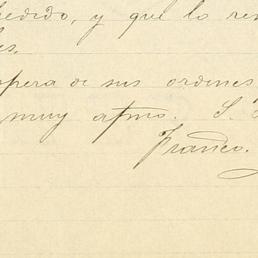 pedido, y que lo rem
es.
spera de sus ordenes
muy afmo. S. S
Franco.